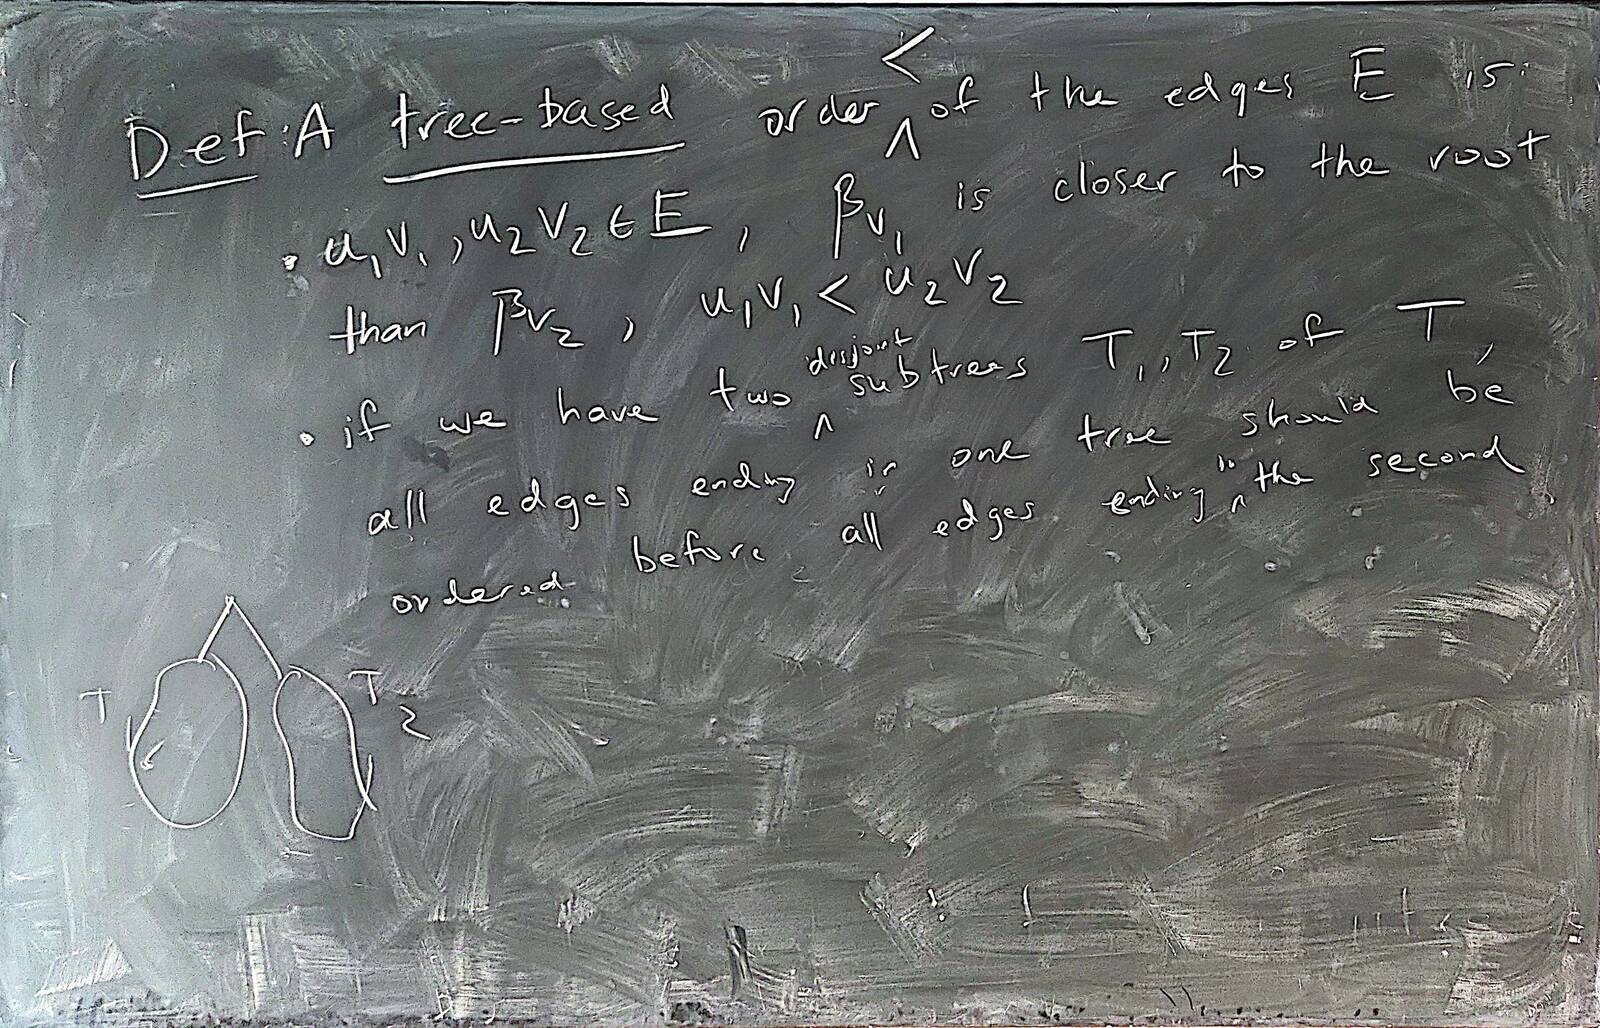 Def: A tree-based order < of the edges E is:
• u₁v₁, u₂v₂ ∈ E, β_v₁ is closer to the root
than β_v₂, u₁v₁ < u₂v₂
• if we have two disjoint subtrees T₁, T₂ of T,
all edges ending in one tree should be
ordered before all edges ending in the second
T₁ T₂